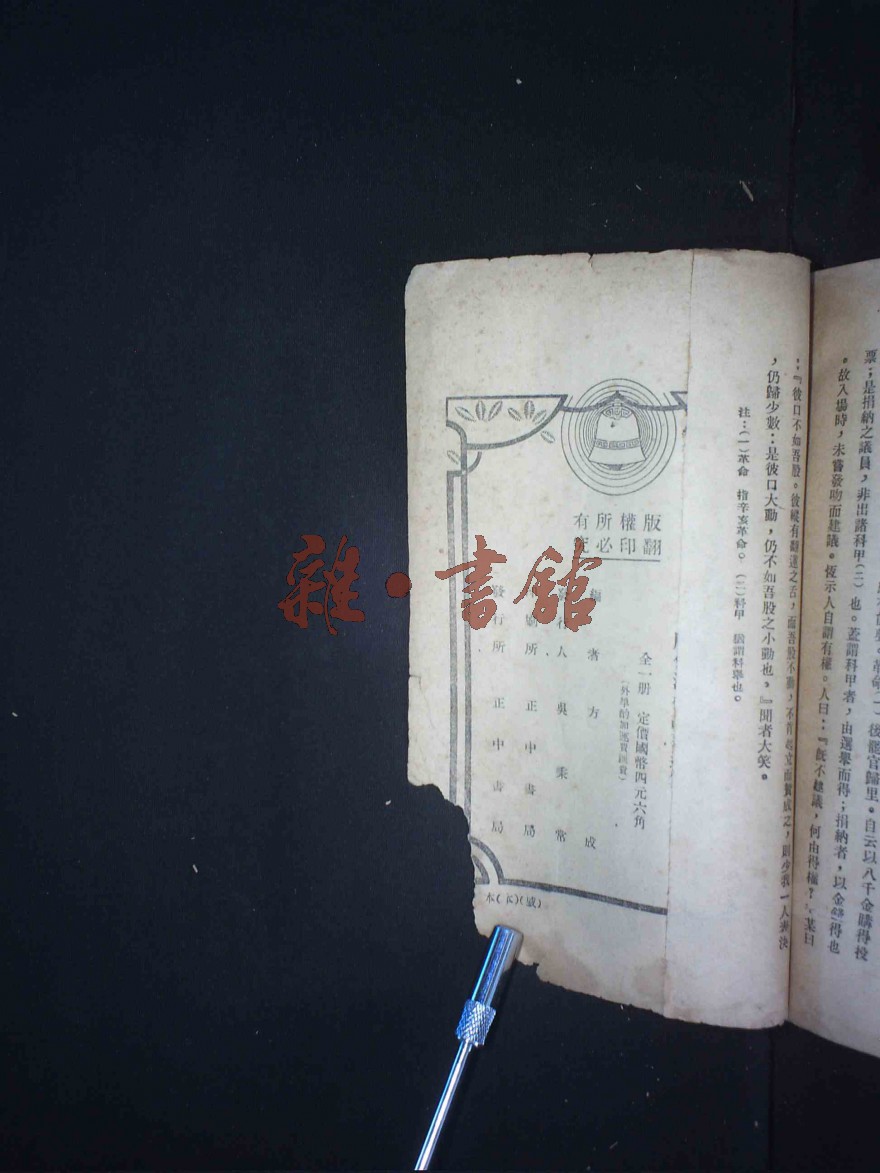 票；是捐納之議員，非出諸科甲(二)也。蓋謂科甲者，由選舉而得；捐納者，以金錢得也
。故入場時，未嘗發吻而建議。恆示人自謂有權。人曰：『既不建議，何由得權？』某曰
：『彼口不如吾股。彼縱有翻蓮之舌，而吾股不動，不肯起立而贊成之，則少我一人表決
，仍歸少數：是彼口大動，仍不如吾股之小動也。』聞者大笑。
注：(一)革命　指辛亥革命。(二)科甲　猶謂科舉也。
版權所有
翻印必
全一冊　定價國幣四元六角
(外埠酌加運費匯費)
編 者 方 成
發行人 吳秉常
刷所 正中書局
發行所 正中書局
雜·書館